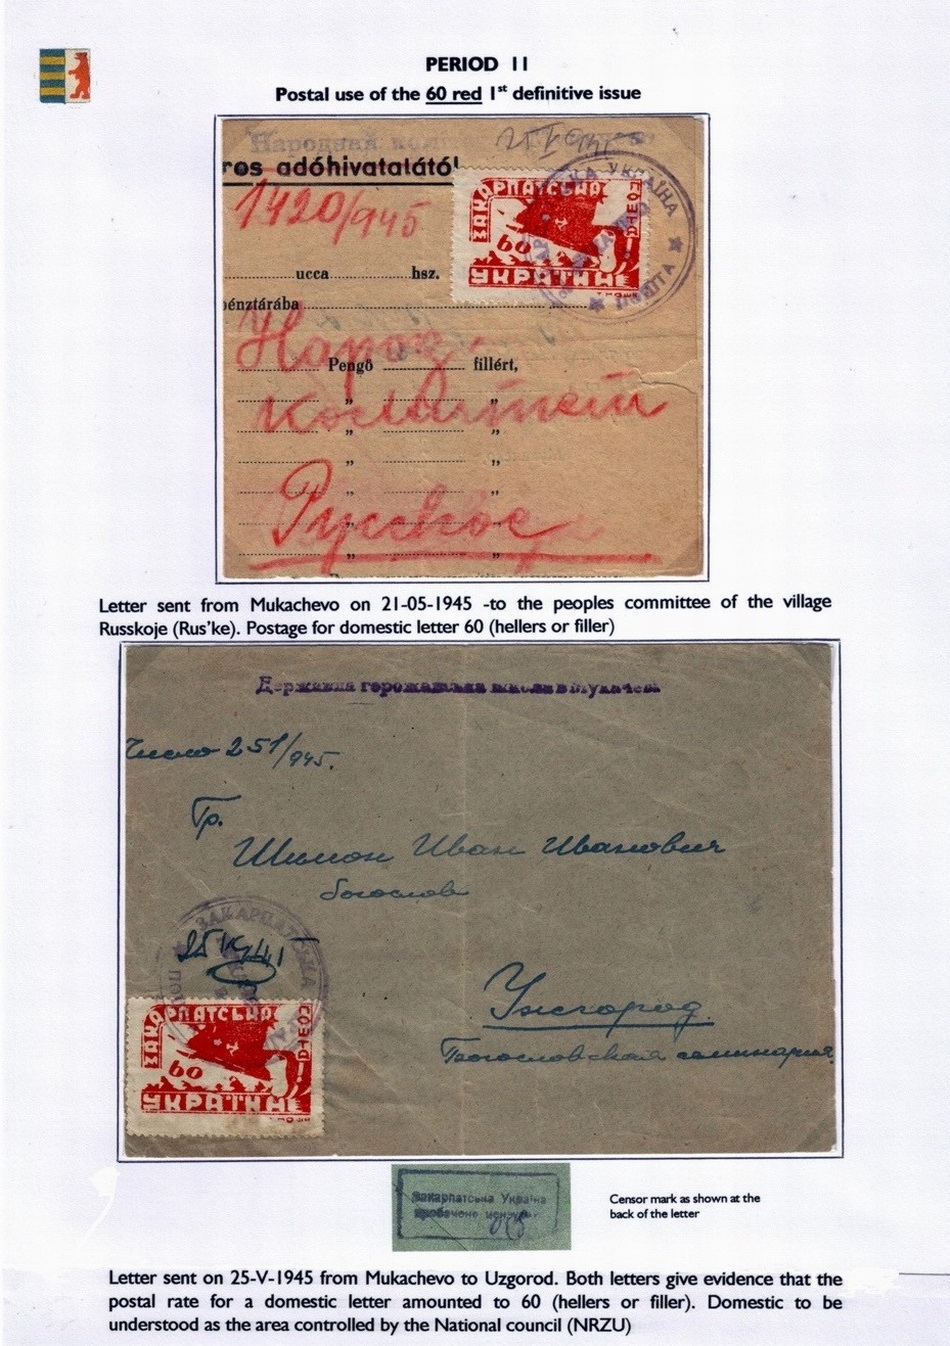 PERIOD 11
Postal use of the 60 red 1st definitive issue
Народнай
25 V 945
ros adóhivatalától
1420/945
ЗАКАРПАТСЬКА
60
УКРАЇНЕ
УКРАЇНА
ПОШТА
ucca hsz.
pénztárába
Народ.
Pengö fillért,
комитет
„ „
„ „
„ „
„ „
Русское
„ „
„ „
Letter sent from Mukachevo on 21-05-1945 -to the peoples committee of the village
Russkoje (Rus'ke). Postage for domestic letter 60 (hellers or filler)
Державна горожанська школа в Мукачеві
Число 251/945.
Гр.
Шимон Иван Иванович
богослов
ЗАКАРПАТСЬКА
Ужгород
Богословская семинария.
ЗАКАРПАТСЬКА
60
УКРАЇНЕ
Закарпатська Україна
Censor mark as shown at the
back of the letter
Letter sent on 25-V-1945 from Mukachevo to Uzgorod. Both letters give evidence that the
postal rate for a domestic letter amounted to 60 (hellers or filler). Domestic to be
understood as the area controlled by the National council (NRZU)